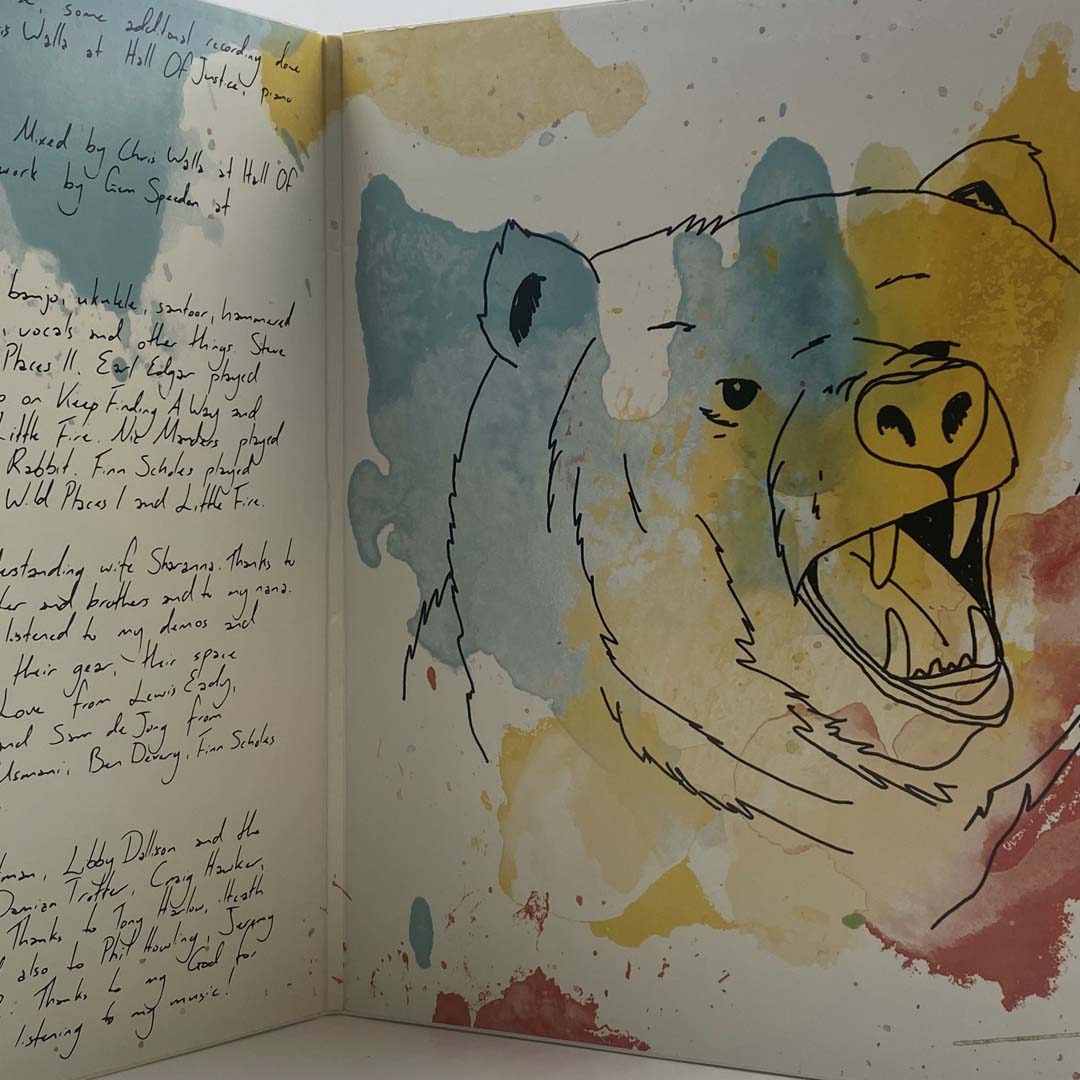 some additonal recording done
Walla at Hall Of Justice, piano
Mixed by Chris Walla at Hall Of
work by Gem Speedon at
banjo, ukulele, santoor, hammered
vocals and other things. Steve
Places II. Earl Edgar played
on Keep Finding A Way and
Little Fire. Nic Manders played
Rabbit. Finn Scholes played
Wild Places I and Little Fire.
wife Sharanna. Thanks to
and brothers and to my nana.
listened to my demos and
their gear, their space
Love from Lewis Eady,
and Sam de Jong from
Usmani, Ben Devery, Finn Scholes
Libby Dallison and the
Damian Trotter, Craig Hawker,
Thanks to Tony Harlow, Heath
also to Phil Howling, Jeremy
Thanks to my God for
listening to my music!